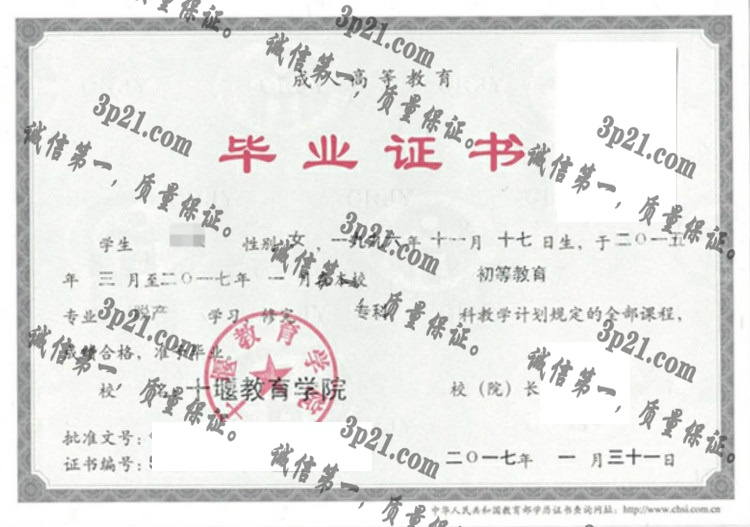 成人高等教育
毕业证书
学生 性别 女 ，一九九六年 十一月 十七 日生，于二〇一五
年 三 月至二〇一七年 一 月在本校 初等教育
专业 脱产 学习，修完 专科 科教学计划规定的全部课程，
成绩合格，准予毕业。
校 名 十堰教育学院 校（院）长
批准文号：
证书编号：
二〇一七年 一 月三十一日
中华人民共和国教育部学历证书查询网址：http://www.chsi.com.cn
十堰教育学院
3p21.com
诚信第一，质量保证。
3p21.com
诚信第一，质量保证。
3p21.com
诚信第一，质量保证。
3p21.com
诚信第一，质量保证。
3p21.com
诚信第一，质量保证。
3p21.com
诚信第一，质量保证。
3p21.com
诚信第一，质量保证。
3p21.com
诚信第一，质量保证。